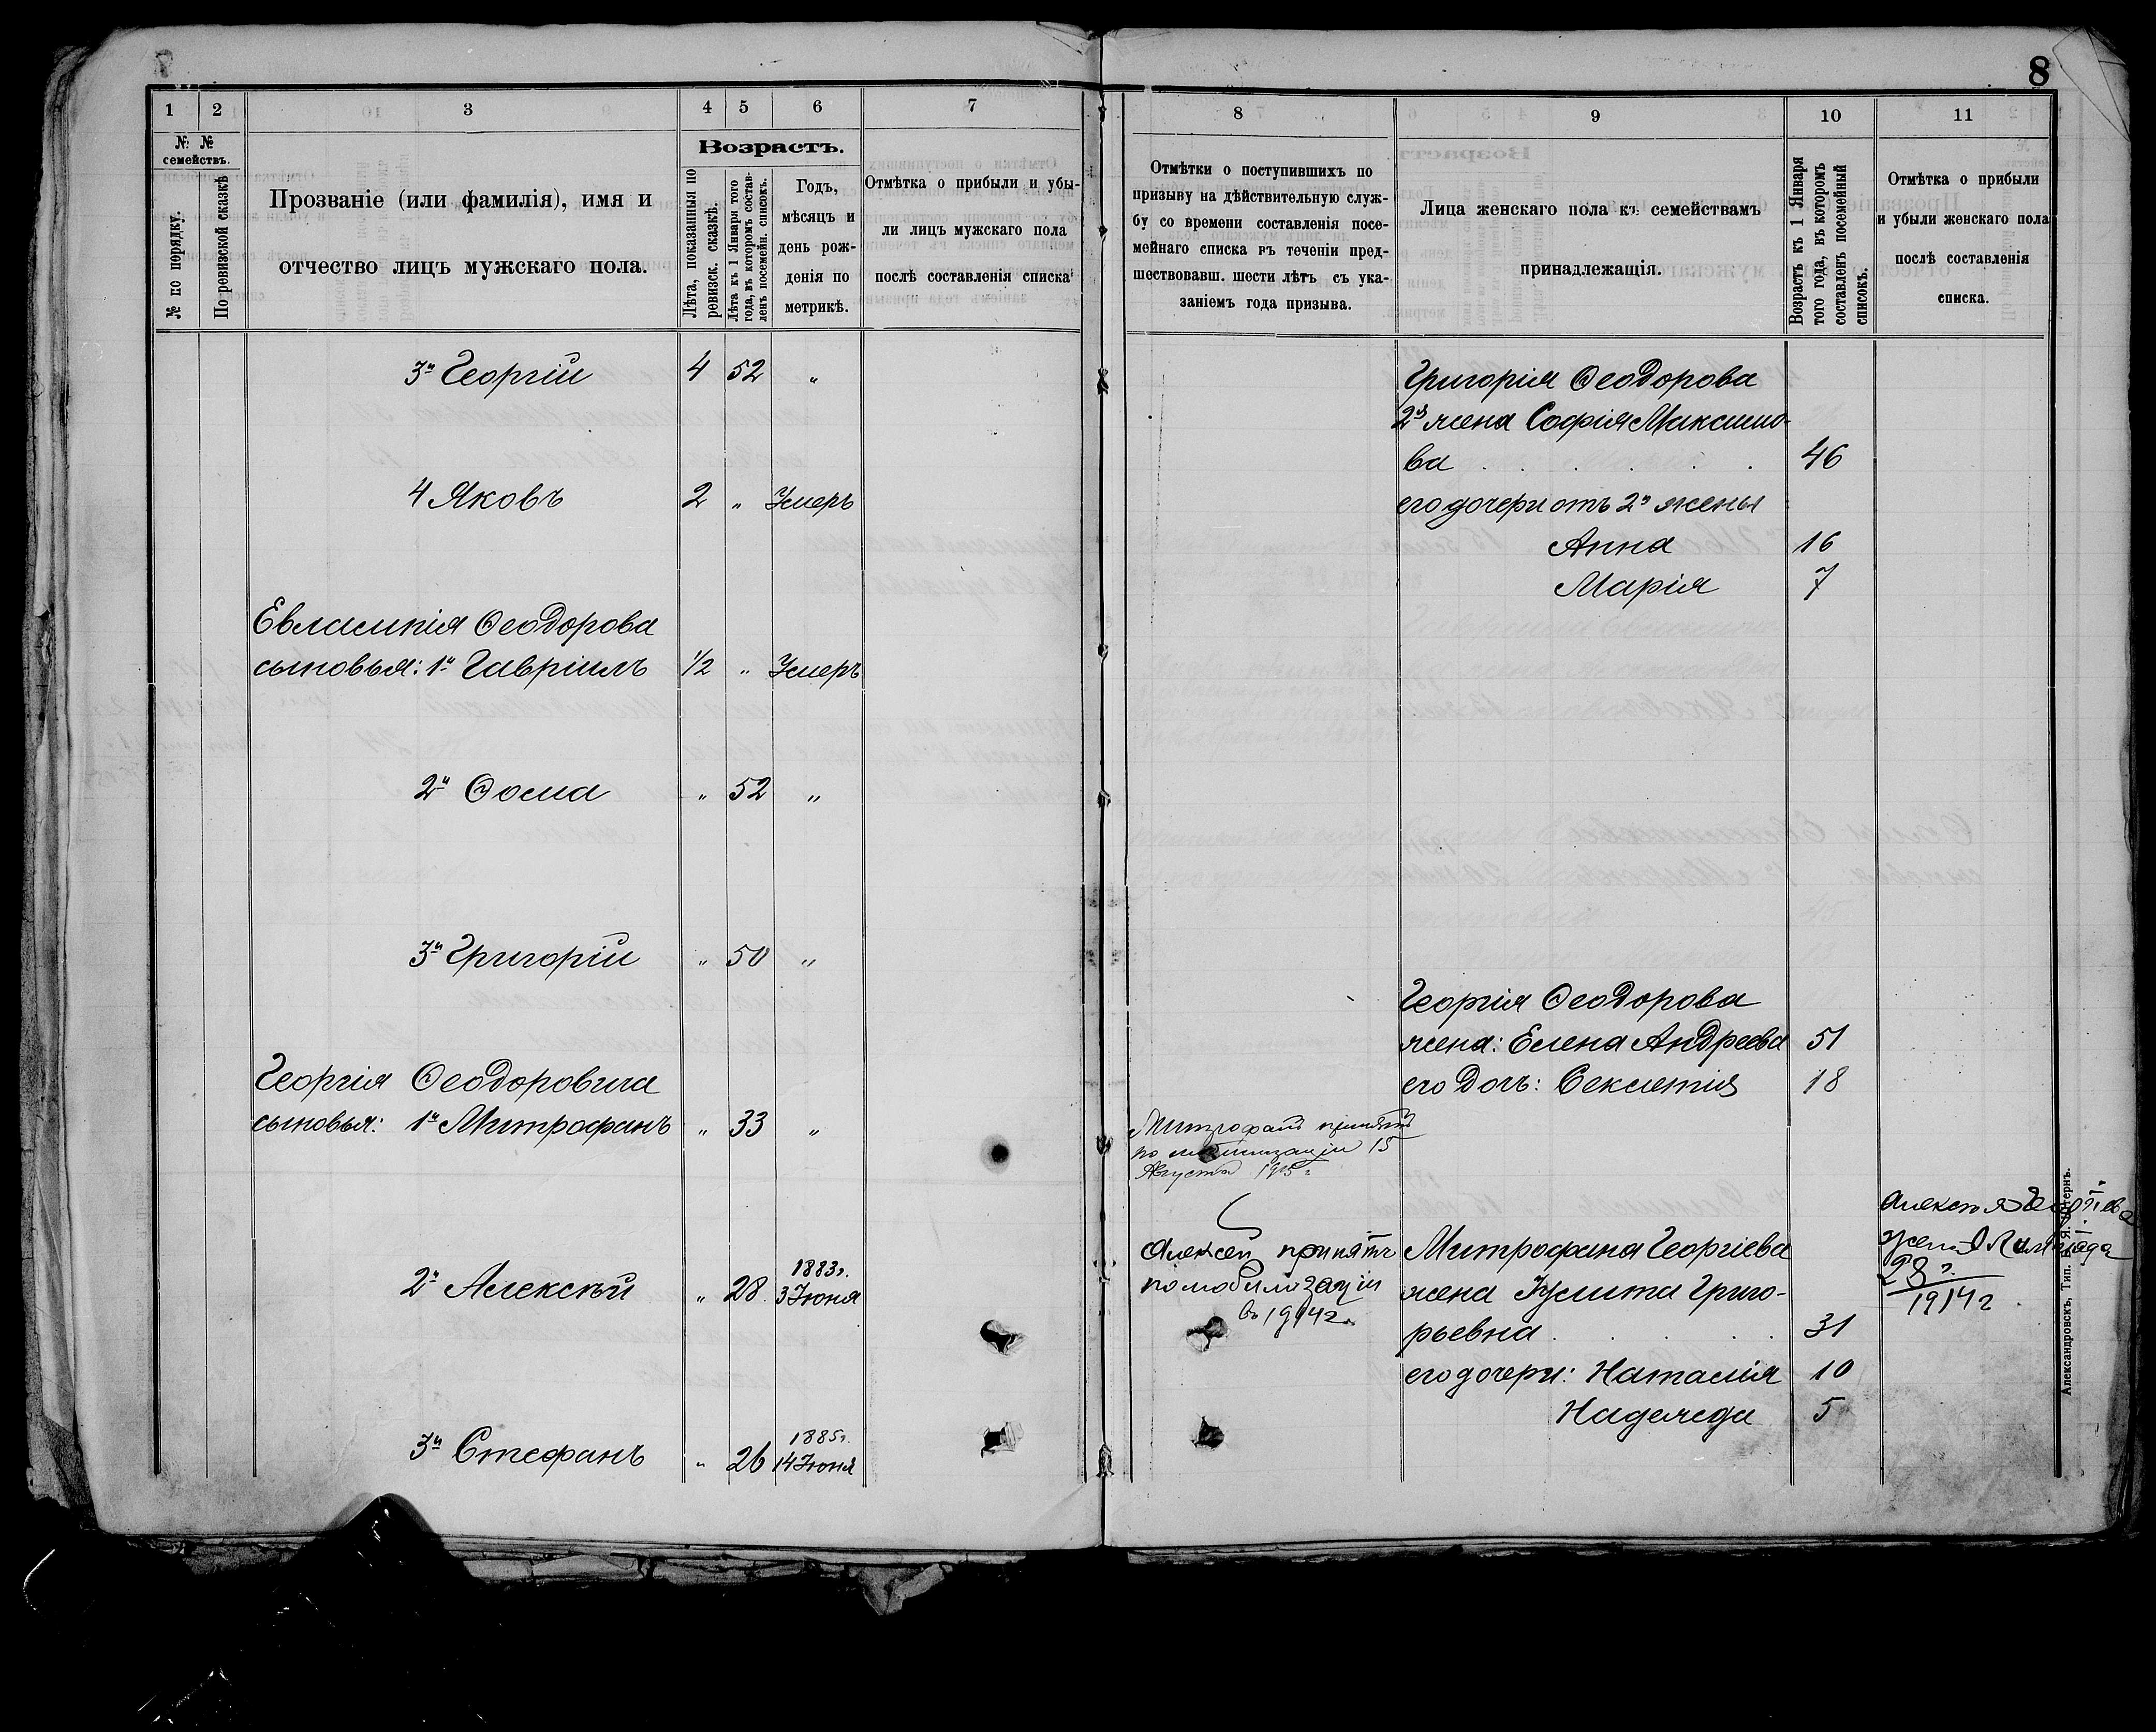 8
1 2 3 4 5 6 7
№ № семействъ.
№ по порядку.
По ревизской сказкѣ
Прозваніе (или фамилія), имя и
отчество лицъ мужскаго пола.
Возрастъ.
Лѣта, показанныя по
ревизск. сказкѣ.
Лѣта къ 1 Января того
года, въ которомъ состав-
ленъ посемейн. списокъ.
Годъ,
мѣсяцъ и
день рож-
денія по
метрикѣ.
Отмѣтка о прибыли и убы-
ли лицъ мужскаго пола
послѣ составленія списка
3й Георгій 4 52 "
4 Яковъ 2 " Умеръ
Евлампія Ѳеодорова
сыновья: 1й Гавріилъ 1/2 " Умеръ
2й Ѳома " 52 "
3й Григорій " 50 "
Георгія Ѳеодоровича
сыновья: 1й Митрофанъ " 33 "
1883г.
2й Алексѣй " 28 3 Іюня
1885г.
3й Стефанъ " 26 14 Іюня
8 9 10 11
Отмѣтки о поступившихъ по
призыву на дѣйствительную служ-
бу со времени составленія посе-
мейнаго списка въ теченіи пред-
шествовавш. шести лѣтъ съ ука-
заніемъ года призыва.
Лица женскаго пола къ семействамъ
принадлежащія.
Возрастъ къ 1 Января
того года, въ которомъ
составленъ посемейный
списокъ.
Отмѣтка о прибыли
и убыли женскаго пола
послѣ составленія
списка.
Григорія Ѳеодорова
2я жена Софія Максимо-
ва . . . . . . 46
его дочери отъ 2й жены
Анна 16
Марія 7
Георгія Ѳеодорова
жена: Елена Андреева 51
его дочь: Секлетія 18
Митрофанъ принятъ
по мобилизаціи 15
Августа 1915г.
Алексей принятъ
по мобилизаціи
въ 1914г.
Митрофана Георгіева
жена Улита Григо-
рьевна . . . . . 31
его дочери: Наталія 10
Надежда 5
жена
28 г.
1914г.
Александровскъ, Тип. Б. Я. Штернъ.